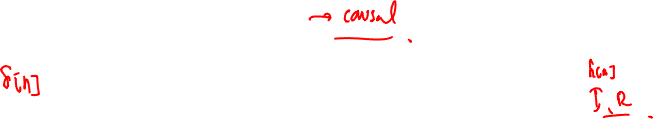 → causal.
δ[n]
h[n]
I.R.